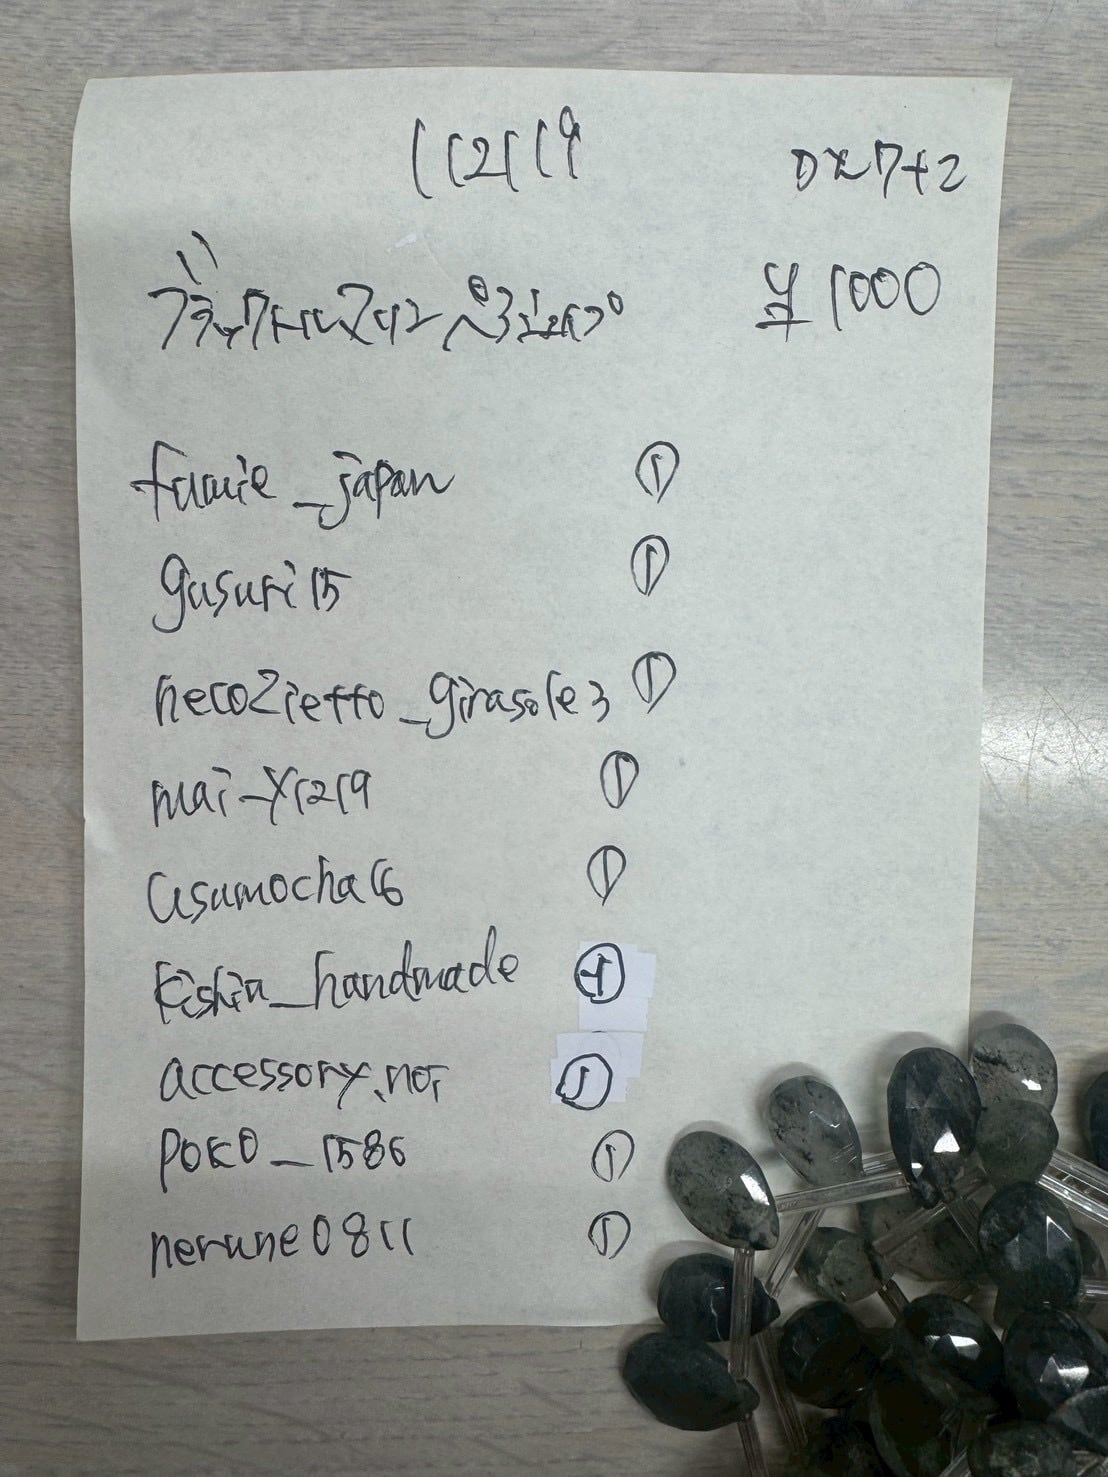 112119
¥1000
fumie_japan ①
gusuri15 ①
neco2ietto_girasole3 ①
mai-y1219 ①
asamocha16 ①
kishin_handmade ①
accessory.nor ①
poko_1586 ①
nerune0811 ①